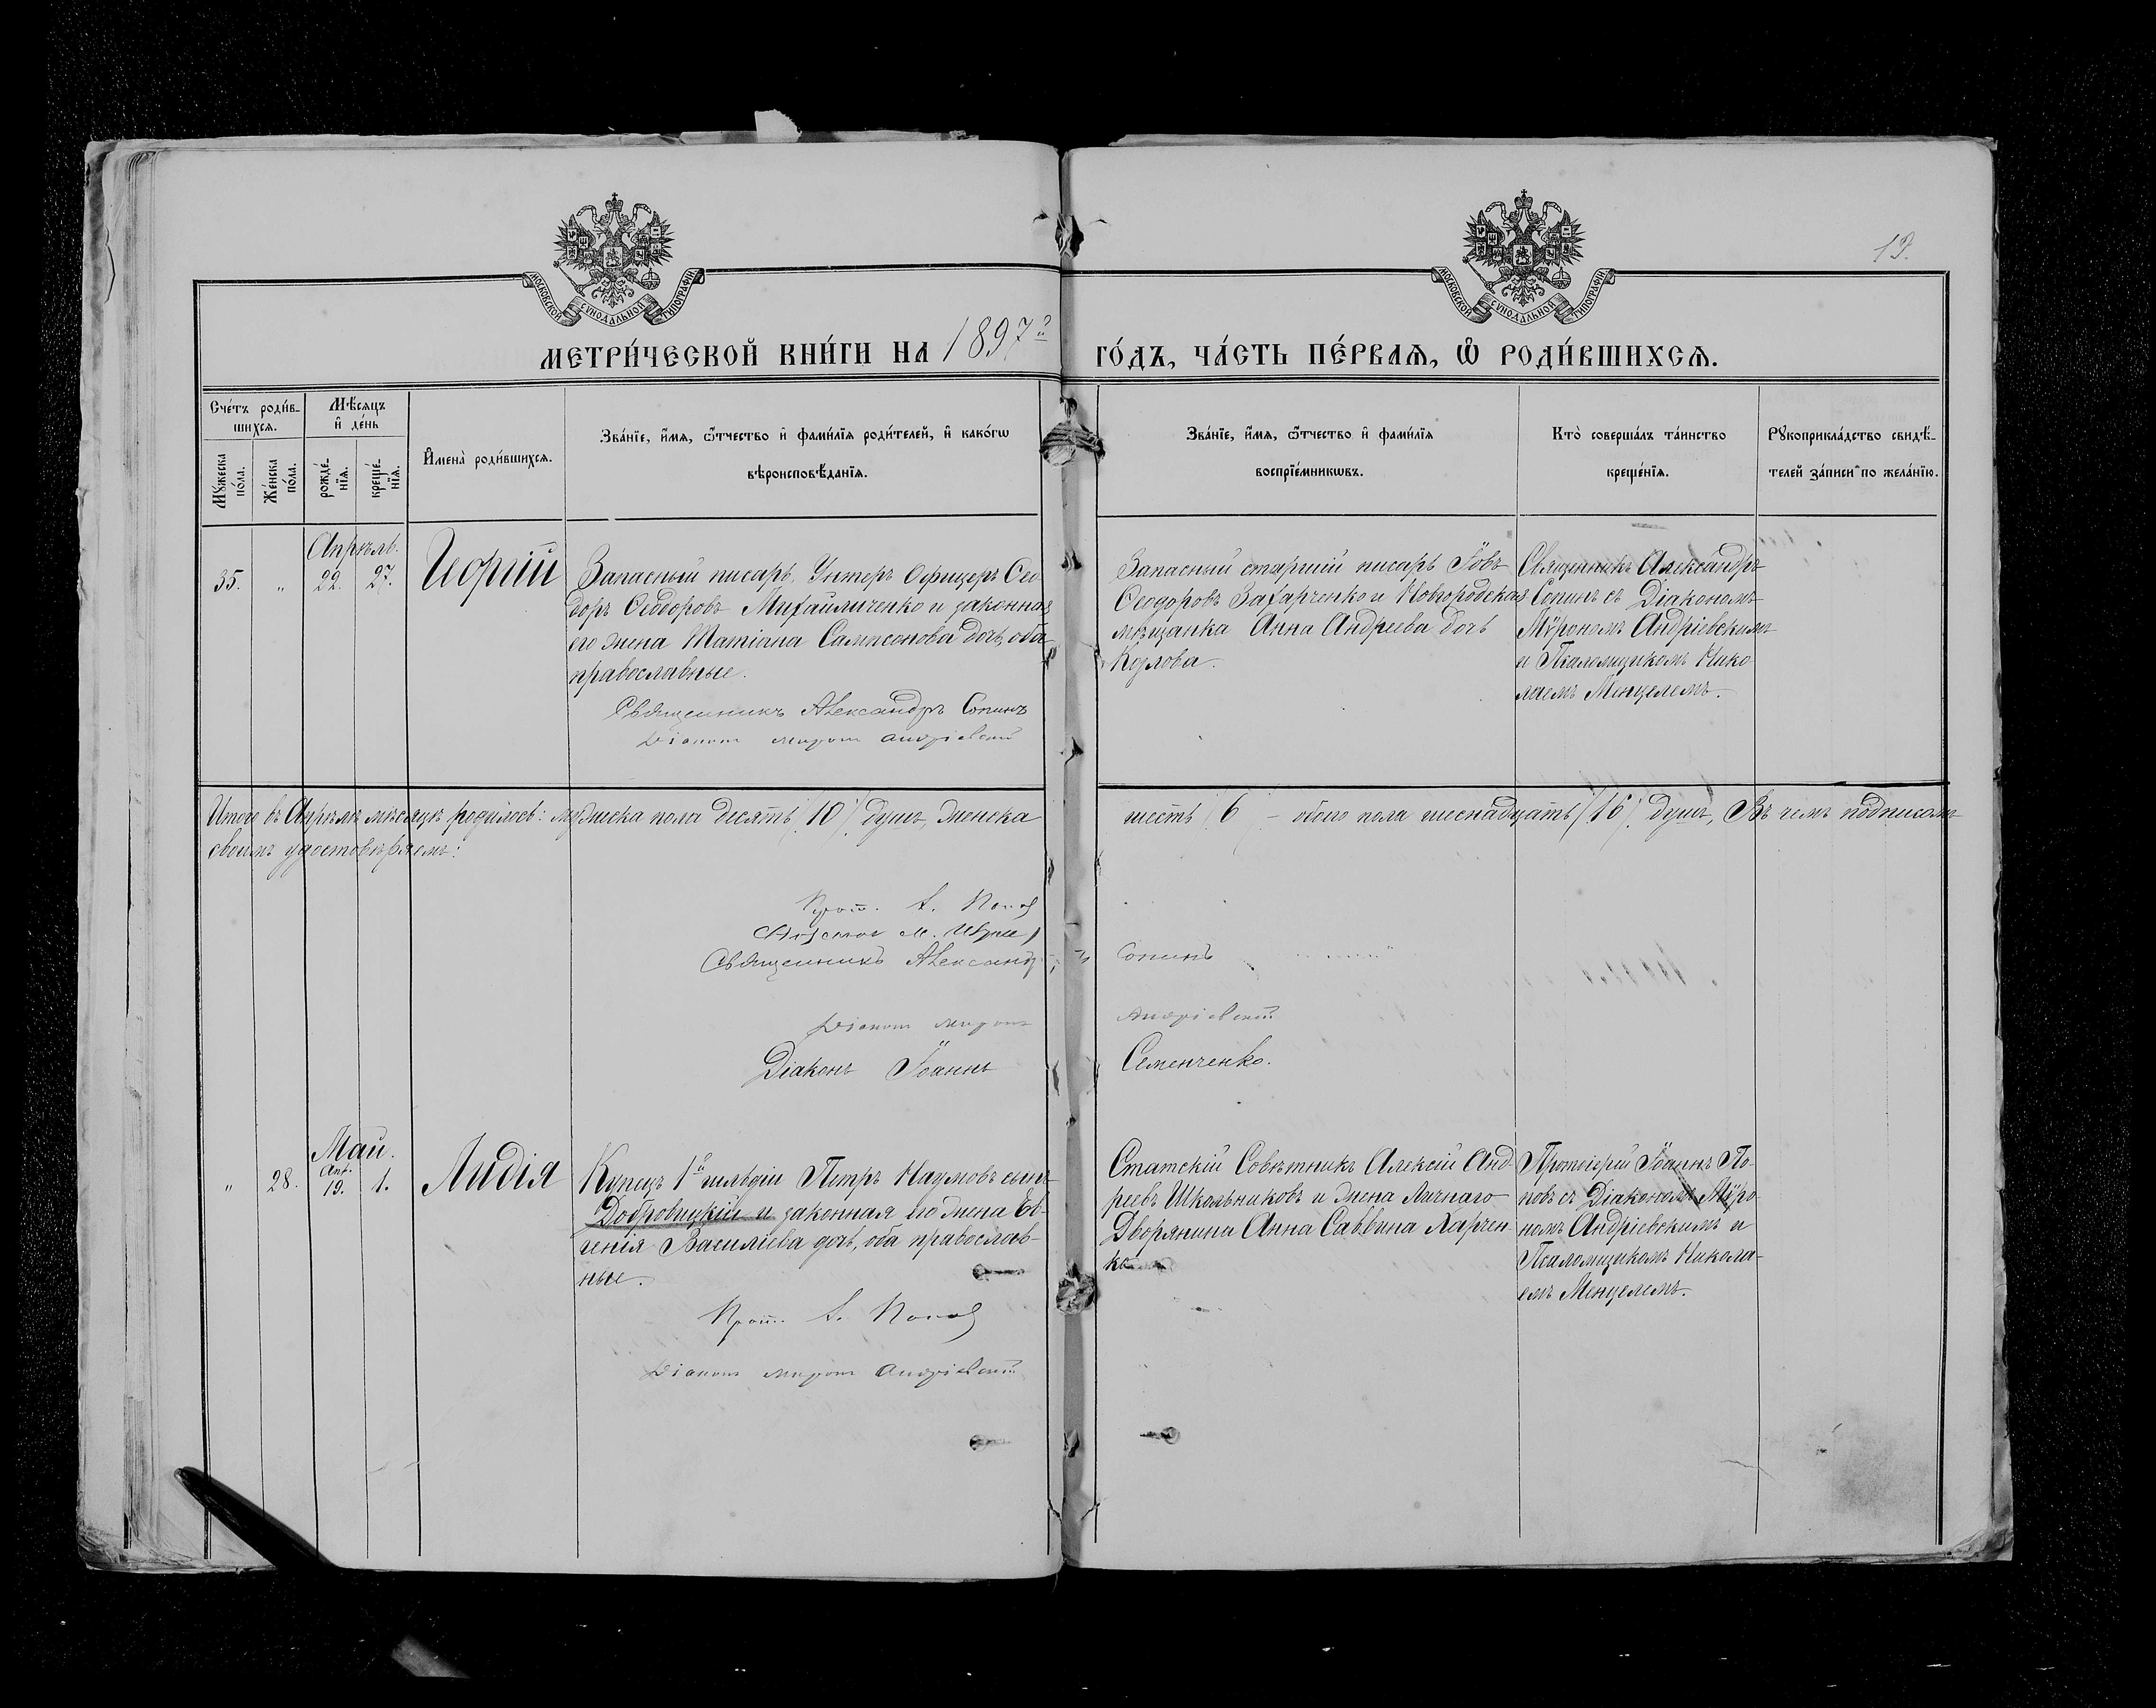 13.
МОСКОВСКОЙ СѴНОДАЛЬНОЙ ТИПОГРАФІИ
МОСКОВСКОЙ СѴНОДАЛЬНОЙ ТИПОГРАФІИ
МЕТРИ́ЧЕСКОЙ КНИ́ГИ НА 1897й ГО́ДЪ, ЧА́СТЬ ПЕ́РВАѦ, Ѡ҆ РОДИ́ВШИХСѦ.
Сче́тъ роди́в-
шихсѧ.
Мꙋ́жеска по́ла.
Же́нска по́ла.
Мѣ́сѧцъ
и҆ де́нь
рожде́-
нїѧ.
креще́-
нїѧ.
И҆мена̀ роди́вшихсѧ.
Зва́нїе, и҆́мѧ, ѻ҆́тчество и҆ фами́лїѧ роди́телей, и҆ како́гѡ
вѣроисповѣ́данїѧ.
Зва́нїе, и҆́мѧ, ѻ҆́тчество и҆ фами́лїѧ
воспрїе́мникѡвъ.
Кто̀ соверша́лъ та́инство
креще́нїѧ.
Рꙋкоприкла́дство свидѣ́-
телей за́писи по жела́нїю.
Апрѣль.
35. " 22. 27.
Запасный писарь, Унтеръ Офицеръ Ѳео
доръ Ѳеодоровъ Михайличенко и законная
его жена Татіана Сампсонова дочь, оба
православные.
Священникъ Александръ Сопинъ
Діаконъ Миронъ Андріевскій
Запасный старшій писарь Іовъ
Ѳеодоровъ Захарченко и Новгородская
мѣщанка Анна Андреева дочь
Козлова.
Священникъ Александръ
Сопинъ съ Діакономъ
Мѵрономъ Андріевскимъ
и Псаломщикомъ Нико
лаемъ Менцелемъ.
Итого въ Апрѣлѣ мѣсяцѣ родилось: мужеска пола десять /10/ душъ, женска шесть /6/ – обоего пола шеснадцать /16/ душъ, Въ чемъ подписомъ
своимъ удостовѣряемъ:
Прот. І. Попов
Священникъ Александръ Сопинъ
Діаконъ Миронъ Андріевскій
Діаконъ Іоаннъ Семенченко.
Май.
" 28. Апр. 19. 1.
Лидія
Купецъ 1й гильдіи Петръ Наумовъ сынъ
Добровицкій и законная его жена Ев-
генія Василіева дочь, оба православ-
ные.
Прот. І. Попов
Діаконъ Миронъ Андріевскій
Статскій Совѣтникъ Алексій Анд-
реевъ Школьниковъ и жена Личнаго
Дворянина Анна Саввина Харчен
ко
Протоіерей Іоаннъ По-
повъ съ Діакономъ Мѵро
номъ Андріевскимъ и
Псаломщикомъ Никола-
емъ Менцелемъ.